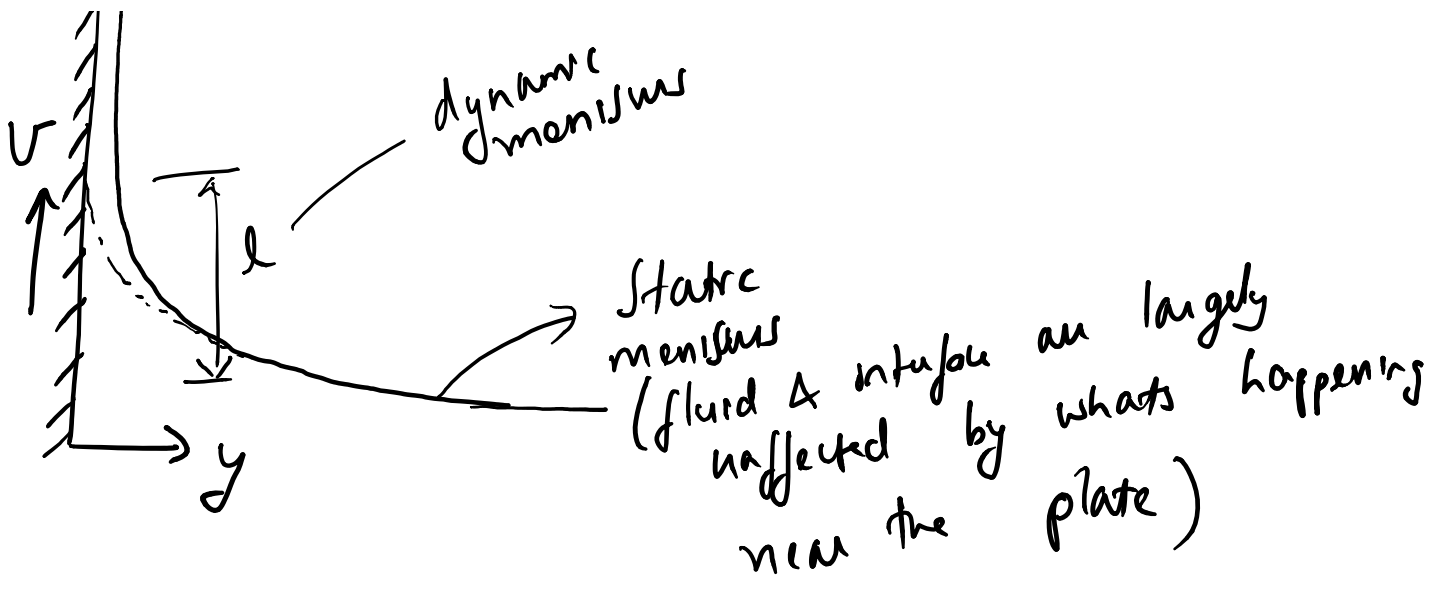 dynamic
menisus
U
l
Static
menisus
(fluid & interface are largely
unaffected by whats happening
near the plate)
y